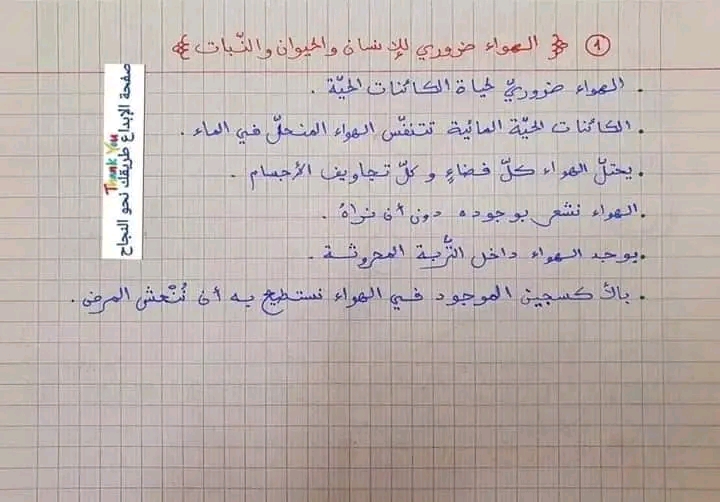 ① ﴿ الهواء ضروري للإنسان والحيوان والنّبات ﴾
. الهواء ضروريّ لحياة الكائنات الحيّة .
. الكائنات الحيّة المائية تتنفّس الهواء المنحلّ في الماء .
. يحتلّ الهواء كلّ فضاءٍ و كلّ تجاويف الأجسام .
. الهواء نشعر بوجوده دون أن نراهُ .
. يوجد الهواء داخل التُّربة المحروثة .
. بالأكسجين الموجود في الهواء نستطيع به أن نُنْعش المرضى .
صفحة الإبداع طريقك نحو النجاح
Thank You